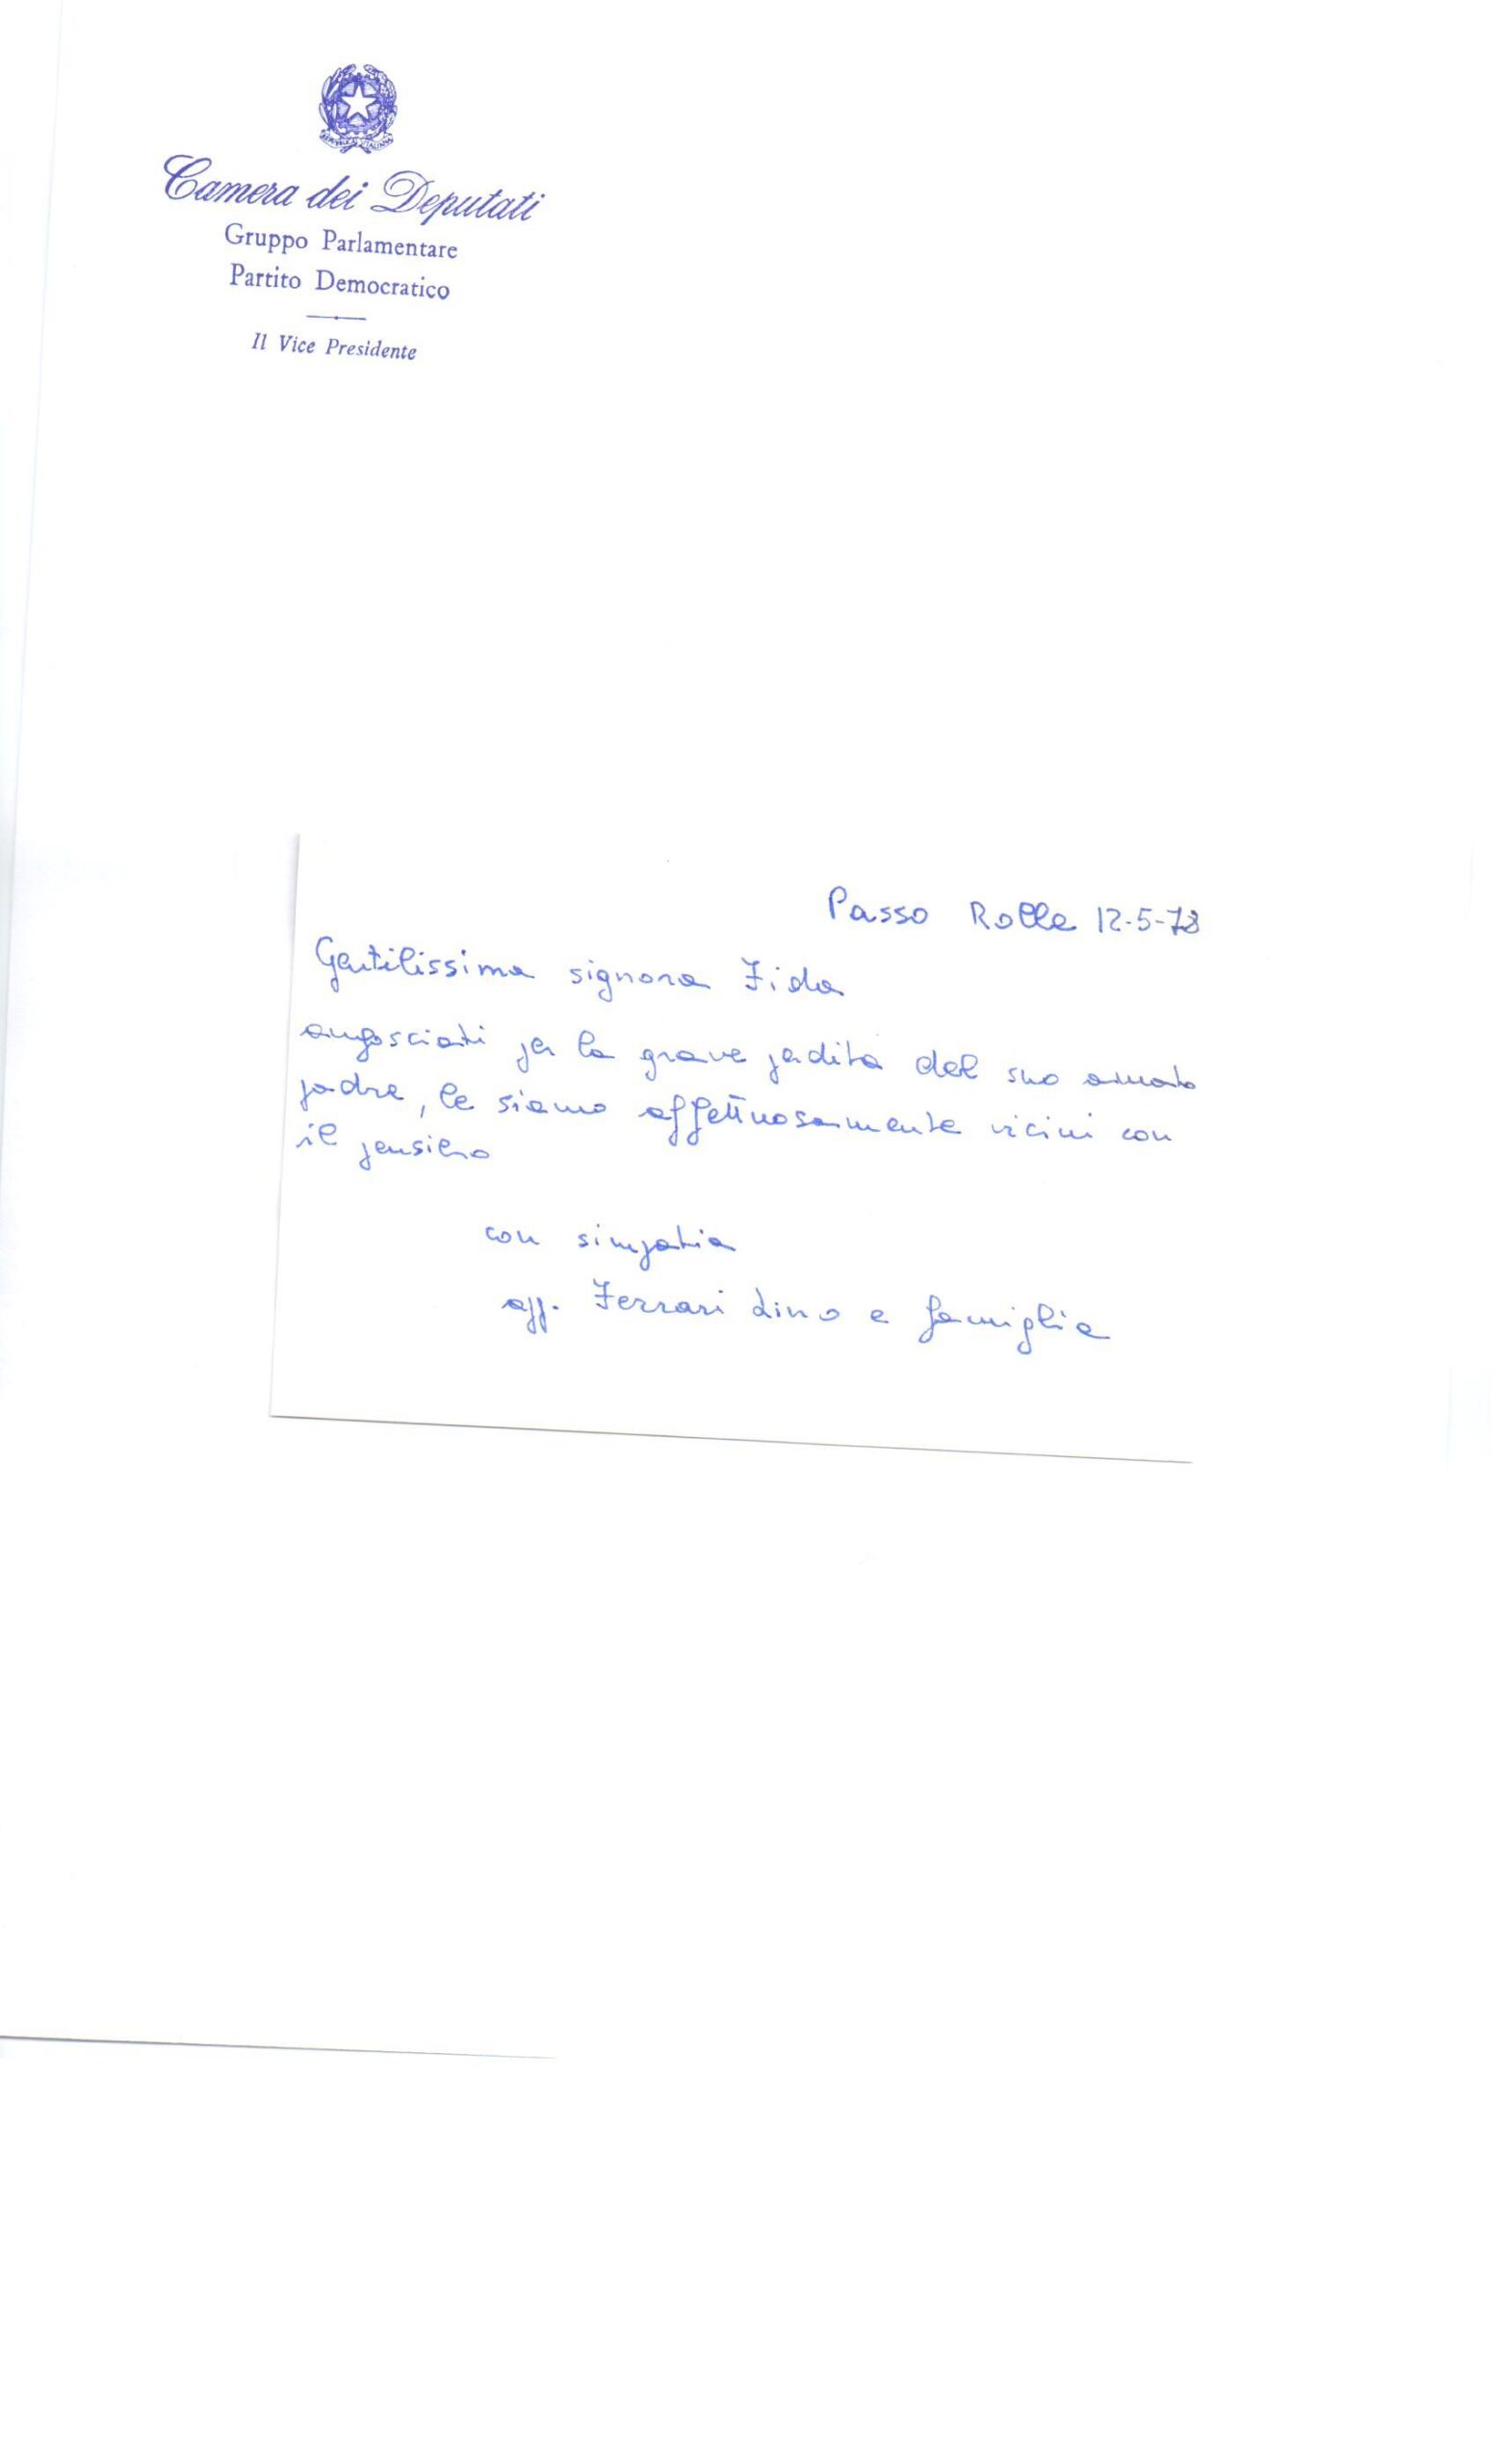 REPVBBLICA ITALIANA
Camera dei Deputati
Gruppo Parlamentare
Partito Democratico
Il Vice Presidente
Passo Rolle 12-5-78
Gentilissima signora Fida
angosciati per la grave perdita del suo amato
padre, le siamo affettuosamente vicini con
il pensiero
con simpatia
aff. Ferrari Lino e famiglia